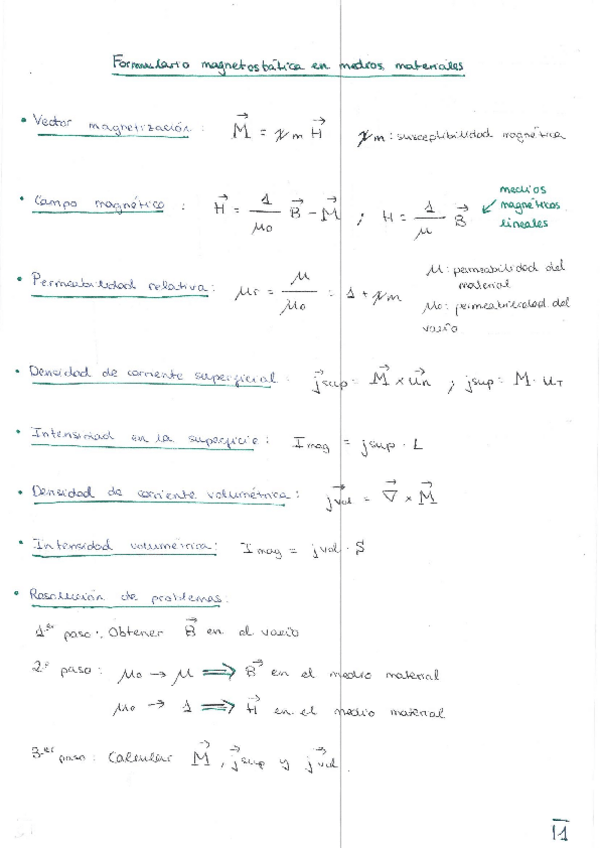 Formulario magnetostática en medios materiales
• Vector magnetización: M⃗ = χm H⃗   χm: susceptibilidad magnética
• Campo magnético: H⃗ = 1/μ0 B⃗ - M⃗ ; H = 1/μ B⃗ ↙ medios magnéticos lineales
• Permeabilidad relativa: μr = μ/μ0 = 1 + χm
μ: permeabilidad del
material
μ0: permeabilidad del
vacío
• Densidad de corriente superficial: j⃗sup = M⃗ × u⃗n ; jsup = M · uT
• Intensidad en la superficie: Imag = jsup · L
• Densidad de corriente volumétrica: j⃗vol = ∇⃗ × M⃗
• Intensidad volumétrica: Imag = jvol · S
• Resolución de problemas:
1er paso: Obtener B⃗ en el vacío
2º paso: μ0 → μ ⟹ B⃗ en el medio material
μ0 → 1 ⟹ H⃗ en el medio material
3er paso: Calcular M⃗, j⃗sup y j⃗vol.